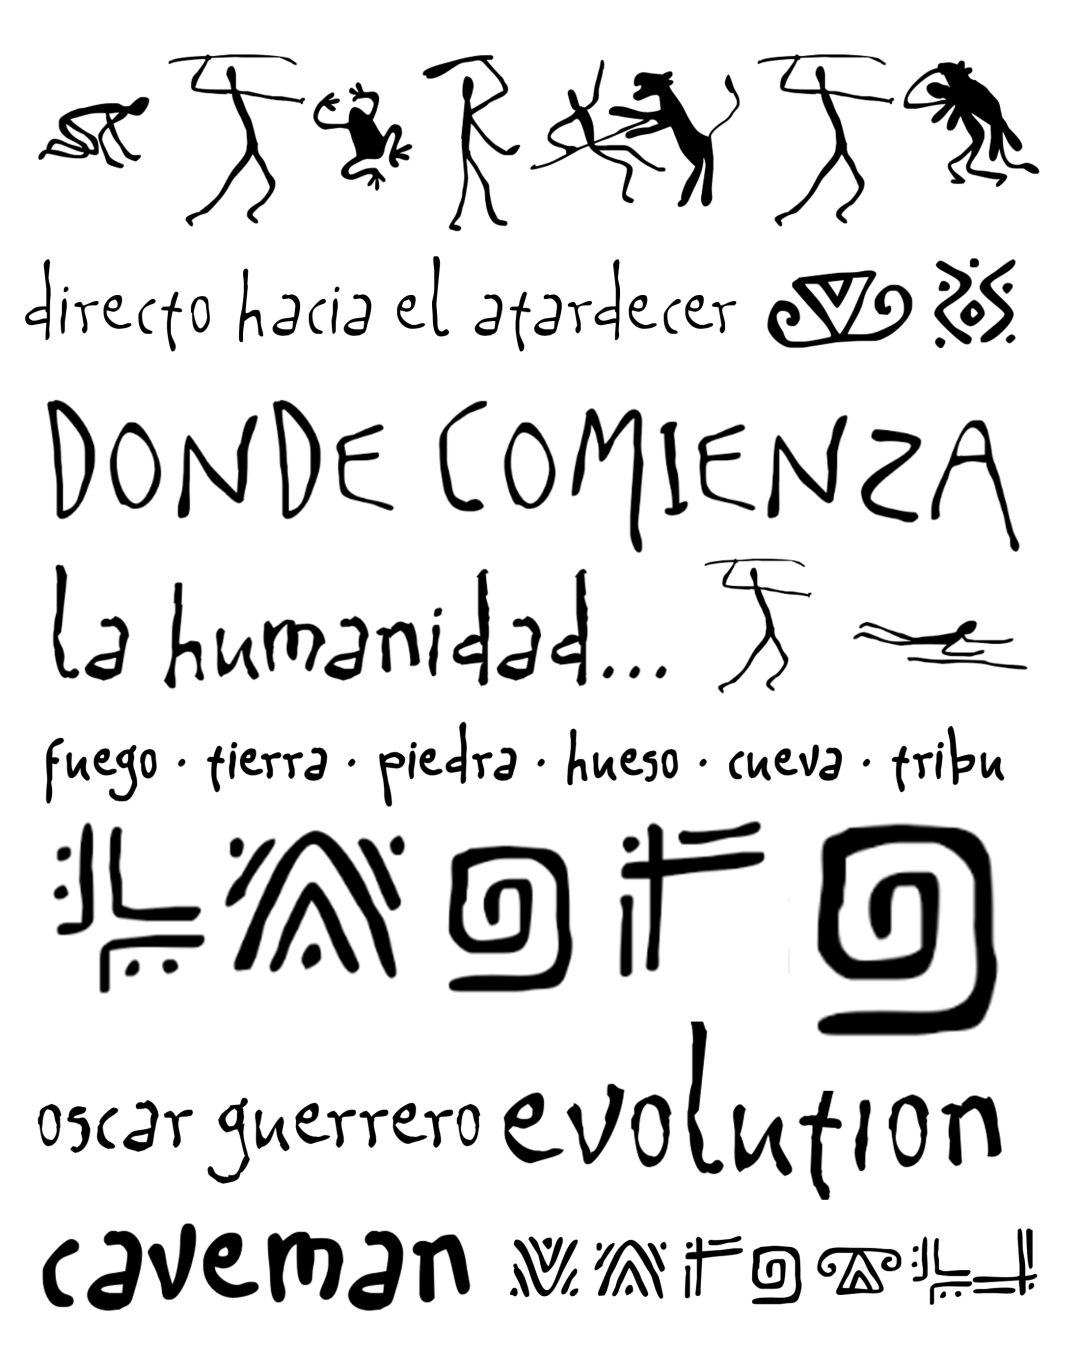 directo hacia el atardecer
DONDE COMIENZA
la humanidad...
fuego · tierra · piedra · hueso · cueva · tribu
oscar guerrero evolution
caveman